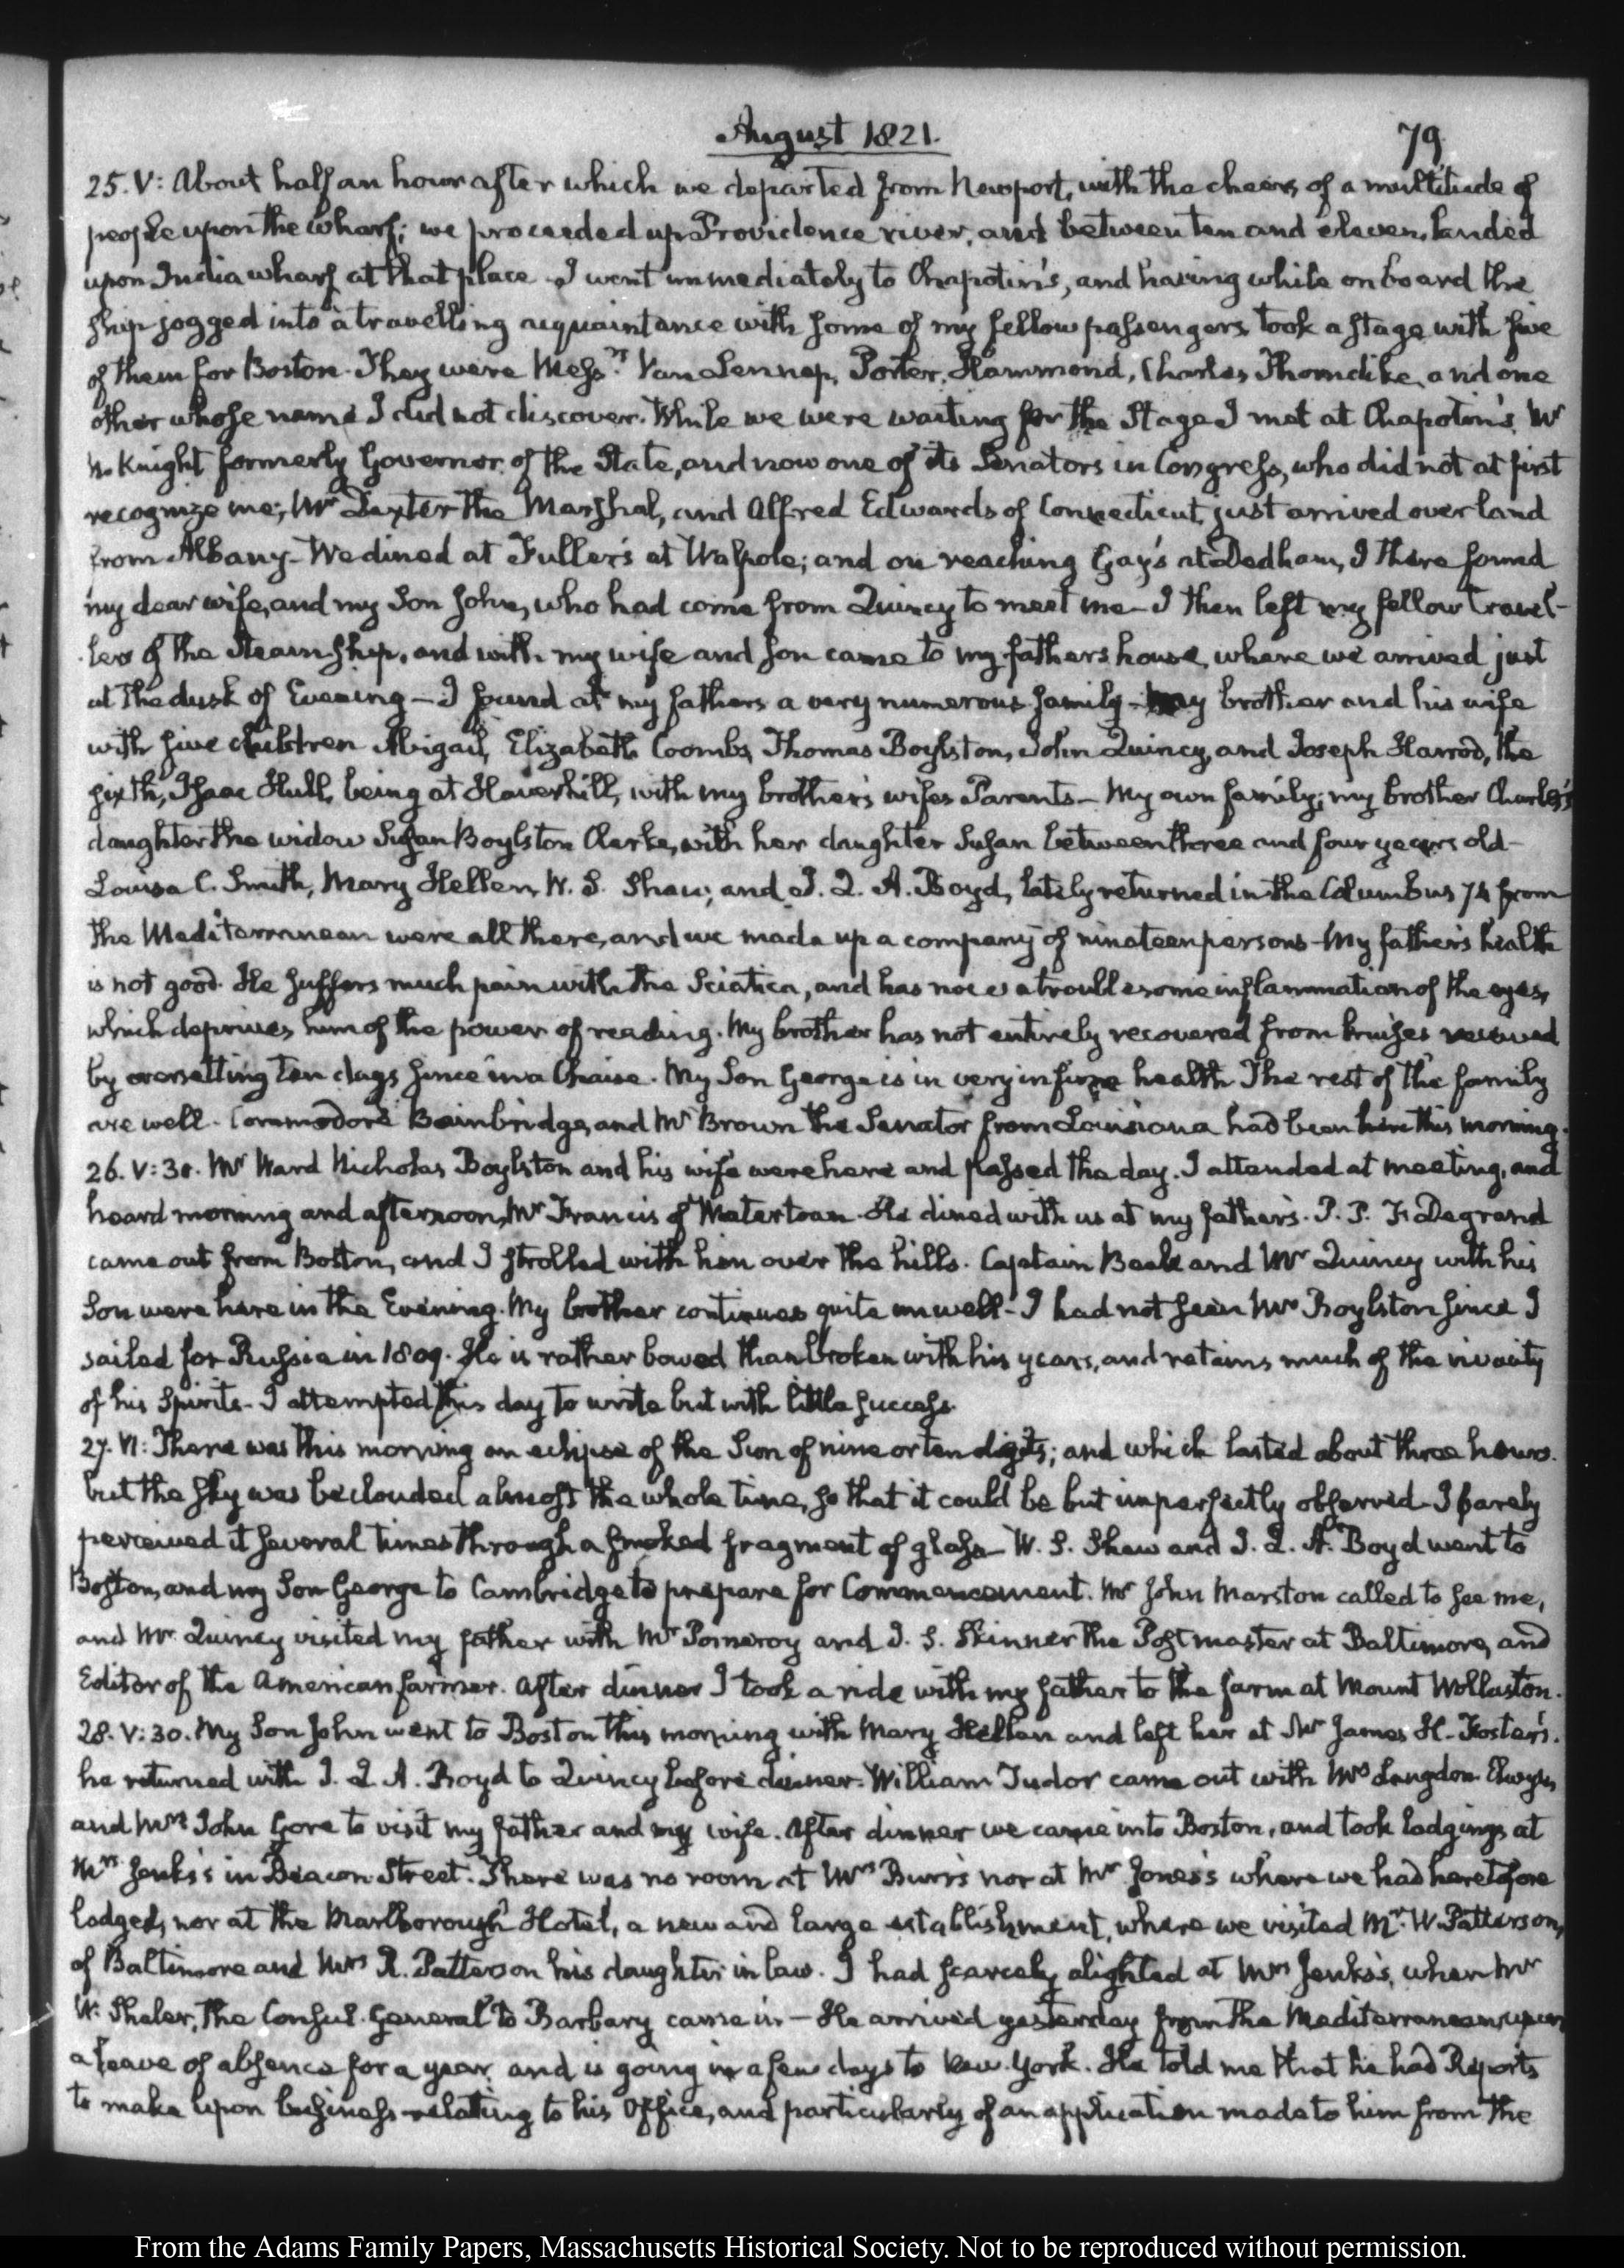 August 1821.
79
25. V: About half an hour after which we departed from Newport, with the cheers of a multitude of
people upon the wharf; we proceeded up Providence river, and between ten and eleven, landed
upon India wharf at that place - I went immediately to Chapotin's, and having while on board the
ship jogged into a travelling acquaintance with some of my fellow passengers took a stage with five
of them for Boston. They were Messrs. Van Lennep, Porter, Hammond, Charles Thorndike, and one
other whose name I did not discover. While we were waiting for the Stage I met at Chapotin's Mr
N. Knight formerly Governor of the State, and now one of its Senators in Congress, who did not at first
recognize me; Mr Dexter the Marshal, and Alfred Edwards of Connecticut, just arrived over land
from Albany - We dined at Fuller's at Walpole; and on reaching Gay's at Dedham, I there found
my dear wife, and my Son John, who had come from Quincy to meet me - I then left my fellow travel-
lers of the Steam Ship, and with my wife and son came to my fathers house, where we arrived just
at the dusk of Evening - I found at my fathers a very numerous family - my brother and his wife
with five children Abigail, Elizabeth Coombs, Thomas Boylston, John Quincy, and Joseph Harrod, the
sixth, Isaac Hull, being at Haverhill, with my brother's wifes Parents - My own family; my brother Charles's
daughter the widow Susan Boylston Clarke, with her daughter Susan between three and four years old -
Louisa C. Smith, Mary Hellen, W. S. Shaw, and J. Q. A. Boyd, lately returned in the Columbus 74 from
the Mediterranean were all there, and we made up a company of nineteen persons - My father's health
is not good. He suffers much pain with the Sciatica, and has now a troublesome inflammation of the eyes,
which deprives him of the power of reading. My brother has not entirely recovered from bruises received
by oversetting ten days since in a Chaise. My Son George is in very infirm health The rest of the family
are well. Commodore Bainbridge, and Mr Brown the Senator from Louisiana had been here this morning.
26. V: 30. Mr Ward Nicholas Boylston and his wife were here and passed the day. I attended at meeting, and
heard morning and afternoon, Mr Francis of Watertown. He dined with us at my father's. P. P. F. Degrand
came out from Boston, and I strolled with him over the hills. Captain Beale and Mr Quincy with his
Son were here in the Evening. My brother continues quite unwell - I had not seen Mr Boylston since I
sailed for Russia in 1809. He is rather bowed than broken with his years, and retains much of the vivacity
of his Spirits - I attempted this day to write but with little success.
27. VI: There was this morning an eclipse of the Sun of nine or ten digits; and which lasted about three hours.
but the sky was beclouded almost the whole time, so that it could be but imperfectly observed - I barely
perceived it several times through a smoked fragment of glass - W. S. Shaw and J. Q. A. Boyd went to
Boston, and my Son George to Cambridge to prepare for Commencement. Mr John Marston called to see me,
and Mr Quincy visited my father with Mr Pomeroy and J. S. Skinner the Postmaster at Baltimore, and
Editor of the American farmer. After dinner I took a ride with my father to the farm at Mount Wollaston.
28. V: 30. My Son John went to Boston this morning with Mary Hellen and left her at Mr James H. Foster's.
he returned with J. Q. A. Boyd to Quincy before dinner. William Tudor came out with Mrs Langdon Elwyn,
and Mrs John Gore to visit my father and my wife. After dinner we came into Boston, and took lodgings at
Mrs Jenks's in Beacon Street. There was no room at Mrs Burr's nor at Mr Jones's where we had heretofore
lodged, nor at the Marlborough Hotel, a new and large establishment, where we visited Mr. W. Patterson,
of Baltimore and Mrs R. Patterson his daughter in law. I had scarcely alighted at Mrs Jenks's, when Mr
W. Shaler, the Consul General to Barbary came in - He arrived yesterday from the Mediterranean, upon
a leave of absence for a year, and is going in a few days to New York. He told me that he had Reports
to make upon business relating to his Office, and particularly of an application made to him from the
From the Adams Family Papers, Massachusetts Historical Society. Not to be reproduced without permission.